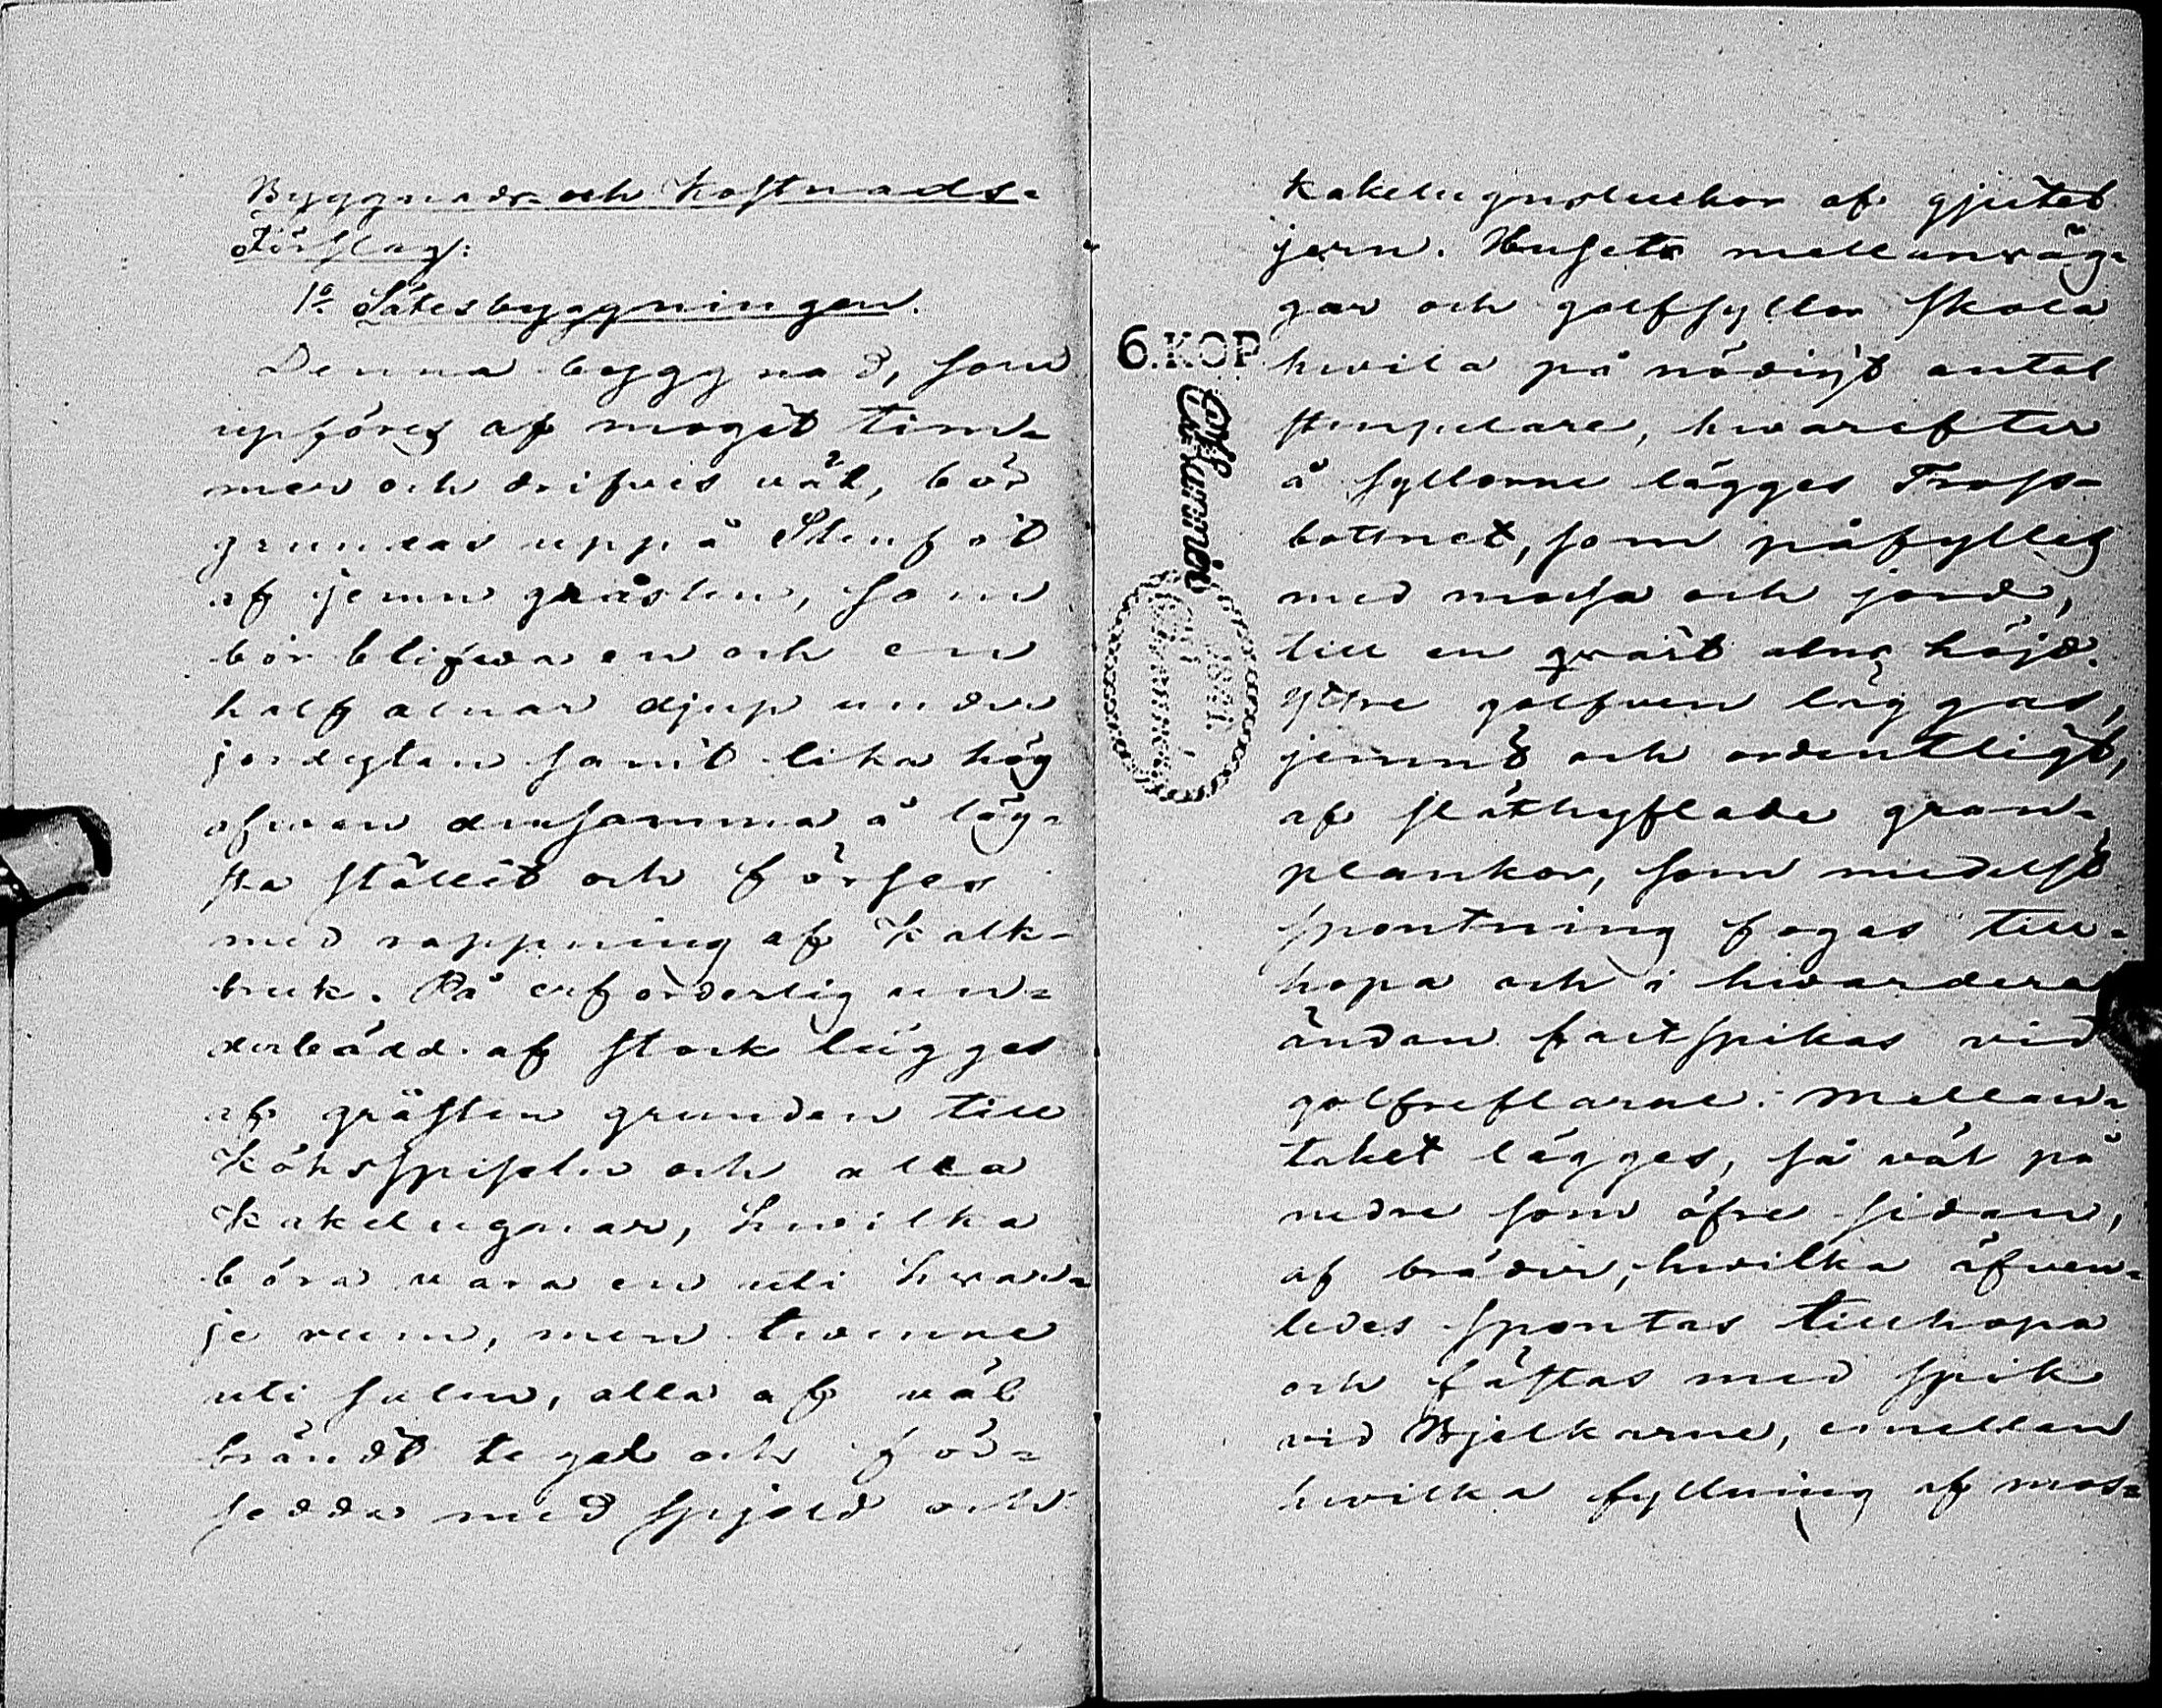 Byggnads- och Kostnads-
Förslag:
1o Sätesbyggningen.
Denna byggnad, som
upföres af moget tim-
mer och drifves väl, bör
grundas uppå Stenfot
af jemn gråsten, som
bör blifwa en och en
half alnar djup under
jordytan samt lika hög
ofwan densamma å läg-
sta stället och förses
med rappning af Kalk-
bruk. På erforderlig un-
derbädd af stock lägges
af gråsten grunden till
Köksspiseln och alla
Kakelugnar, hwilka
böra vara en uti hwar-
je rum, men twenne
uti salen, alla af väl
brändt tegel och för-
sedda med spjeld och
Kakelugnsluckor af gjutet
jern. Husets mellanväg-
gar och golfsyllor skola
6.KOP
hwila på nödigt antal
stenpelare, hwarefter
å syllorne lägges Tross-
bottnet, som påfylles
med mossa och jord,
till en qvart alns höjd.
Yttre golfven läggas,
jemnt och ordentligt,
af släthyflade gran-
plankor, som medelst
spontning fogas till-
hopa och i hwardera
ändan fastspikas vid
golfreflarne. Mellan-
taket lägges, så väl på
nedre som öfre sidan,
af bräder, hwilka äfven-
ledes spontas tillhopa
och fästas med spik
vid Bjelkarne, emellan
hwilka fyllning af mos-